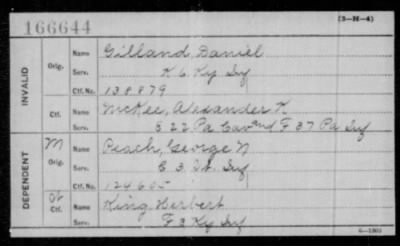 166644
(3-H-4)
INVALID
Orig.
Name Gilland, Daniel
Serv. K 6 Ky Inf
Ctf. No. 138879
Ctf.
Name McKee, Alexander K
Serv. S 22 Pa Cav and F 37 Pa Inf
DEPENDENT
M
Orig.
Name Peach, George N
Serv. C 3 Inf
Ctf. No. 124605
Ctf.
Name King Herbert
Serv. F 3 Ky Inf
6-1801